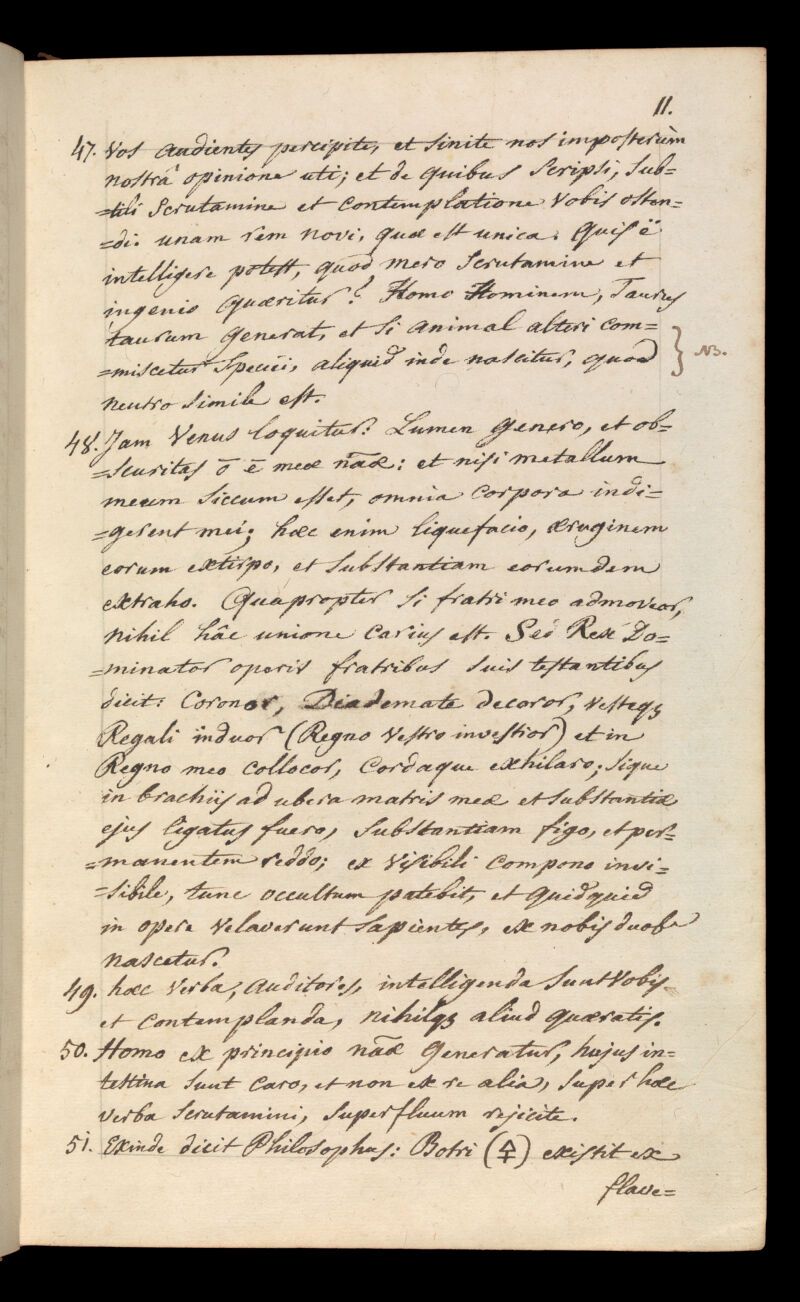 11.
47. Vos audientes percipite, et sinite nos imposterùm
nostrâ opinione uti; et de quibus scripsi, sub-
=tili scrutamine et contemplatione Vobis osten-
=di. unam rem novi, quæ est unica. Quis ē
intelligere potest, quod mero scrutamine et
ingenio quæritur? Homo Hominem, Taurus
taurum generat, et si animal alteri com=
=miscetur speciei, aliquid inde nascitur, quod
neutro simile est.
} NB.
48. Jam Venus loquitur: Lumen genero, et ob-
=scuritas ō ē meæ nāæ: et nisi metallum
meum siccum esset, omnia corpora indi-
=gerent mei; hæc enim liquefacio, æruginem
eorum extirpo, et substantiam eorumdem
extraho. Quapropter si fratri meo admoveor,
nihil hâc unione carius est. Sed Rex Do=
=minator operis fratribus suis testantibus
dicit: Coronor, Diademate decoror, vesteqȝ
Regali induor (Regno Vestro investior) et in
Regno meo collocor, Cordaque exhilaro; sique
in brachiis ad ubera matris meæ et substantiæ
ejus ligatus fuero, substantiam figo, et per-
=manentem reddo; ex visibili compono invi=
=sibile, tunc occultum patebit, et quidquid
in opere velaverunt sapientes, ex nobis duobꝰ
nascetur.
49. hæc Verba, auditores, intelligenda sunt Vobis
et contemplanda, nihilqȝ aliud quæratis.
50. Homo ex principio nāæ generatur, hujus in=
testina sunt caro, et non ex re alia, super hæc
verba scrutamini, superfluum rejicite.
51. Exinde dicit Philosophus: Botri (🜍) existit ex
flave=